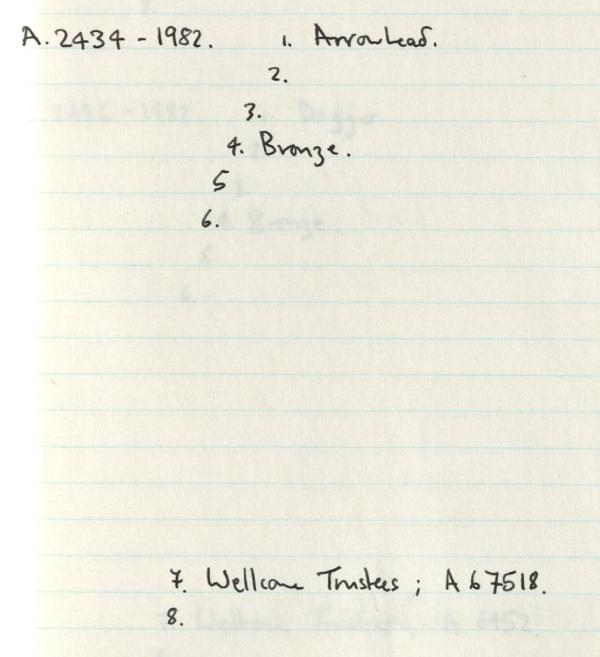 A. 2434 - 1982. 1. Arrowhead.
2.
3.
4. Bronze.
5
6.
7. Wellcome Trustees ; A 67518.
8.